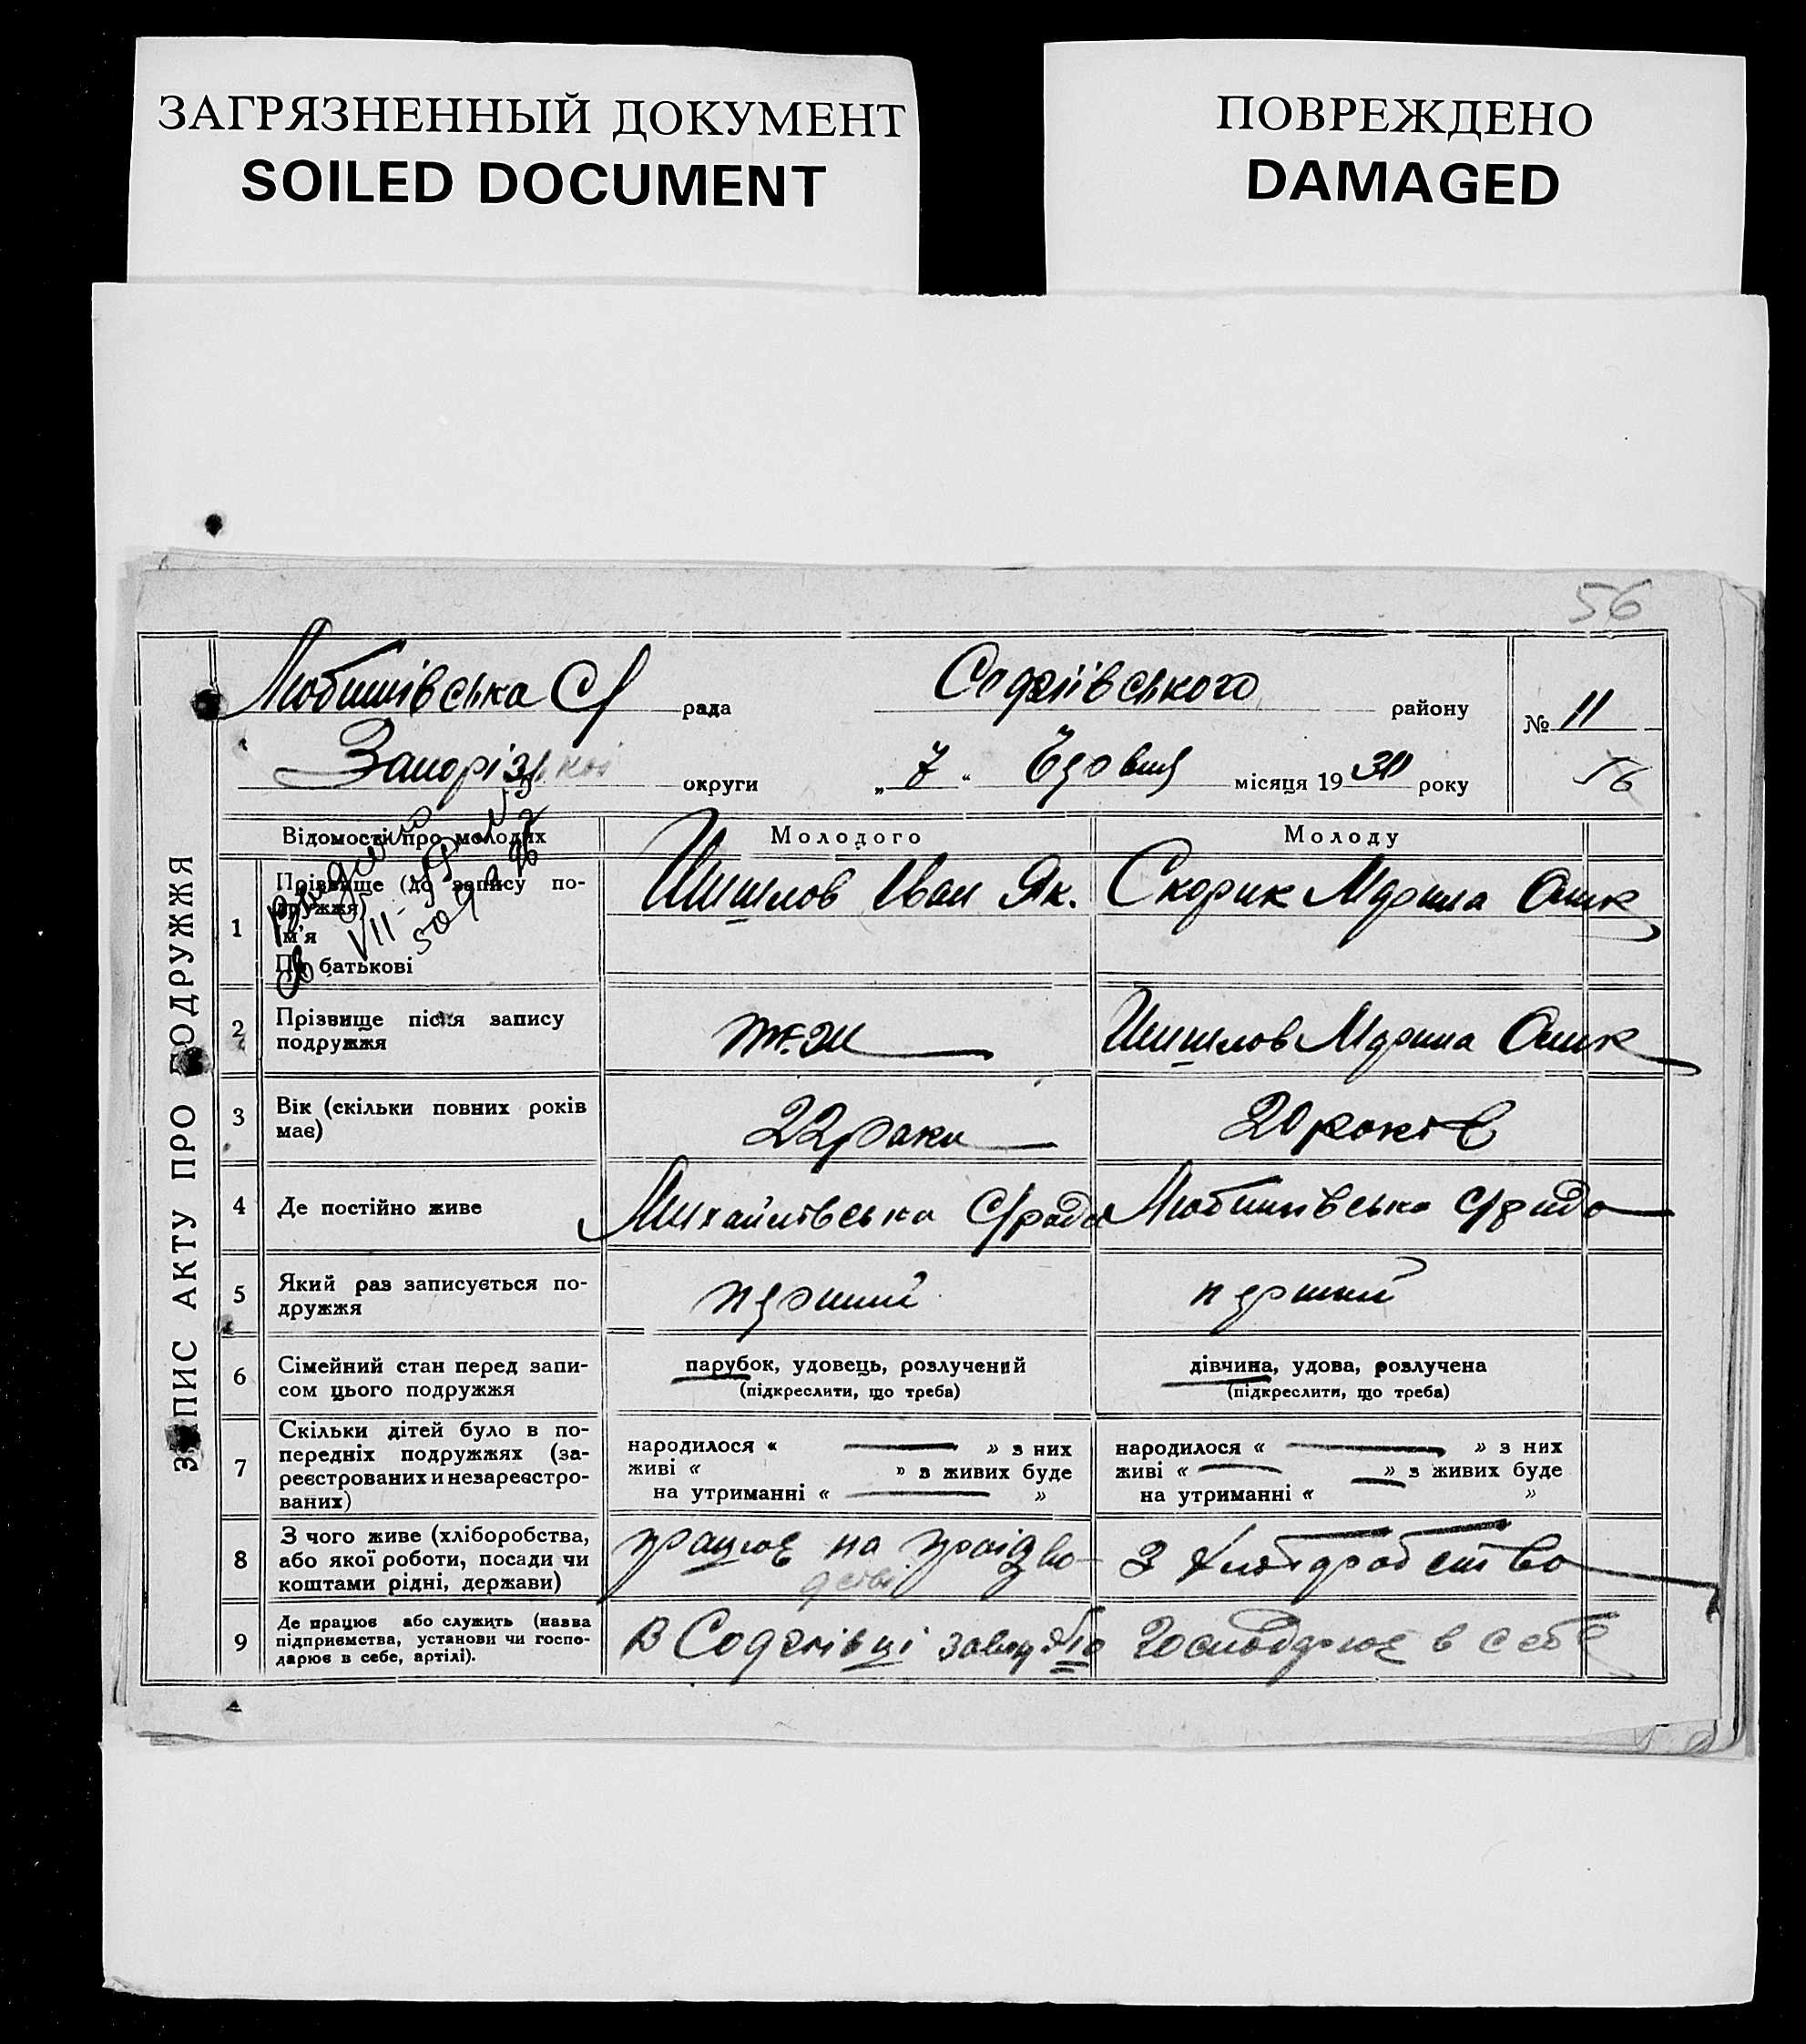 ЗАГРЯЗНЕННЫЙ ДОКУМЕНТ
SOILED DOCUMENT
ПОВРЕЖДЕНО
DAMAGED
56
ЗАПИС АКТУ ПРО ПОДРУЖЖЯ
Любимівська С/ рада Софіївського району № 11
Запорізької округи „ 7 “ Червня місяця 1930 року 56
Відомості про молодих Молодого Молоду
1 Прізвище (до запису по-
дружжя)
Ім'я
По батькові
Шишлов Іван Як. Скорик Марина
2 Прізвище після запису
подружжя
теж Шишлов Марина
3 Вік (скільки повних років
має)
22 роки 20 років
4 Де постійно живе Михайлівська С/рада Любимівська С/рада
5 Який раз записується по-
дружжя
перший перший
6 Сімейний стан перед запи-
сом цього подружжя
парубок, удовець, розлучений
(підкреслити, що треба)
дівчина, удова, розлучена
(підкреслити, що треба)
7 Скільки дітей було в по-
передніх подружжях (за-
реєстрованих и незареєстро-
ваних)
народилося « — » з них
живі « » з живих буде
на утриманні « — »
народилося « — » з них
живі « — » з живих буде
на утриманні « »
8 З чого живе (хліборобства,
або якої роботи, посади чи
коштами рідні, держави)
працює на
з хліборобство
9 Де працює або служить (назва
підприємства, установи чи госпо-
дарює в себе, артілі).
В Софіївці завод
господарює в себе